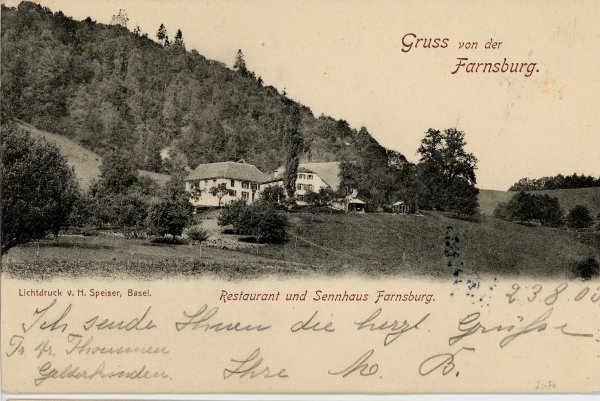 Gruss von der
Farnsburg.
Lichtdruck v. H. Speiser, Basel.
Restaurant und Sennhaus Farnsburg.
Ich sende Ihnen die herzl Grüsse
Thommen
Ihre M. B.